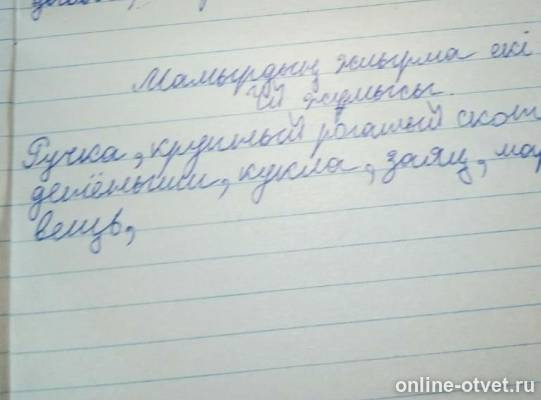 Мамырдың жиырма екі
Үй жұмысы.
Ручка, крупный рогатый скот
детёныши, кукла, заяц, мар
вещь,
online-otvet.ru